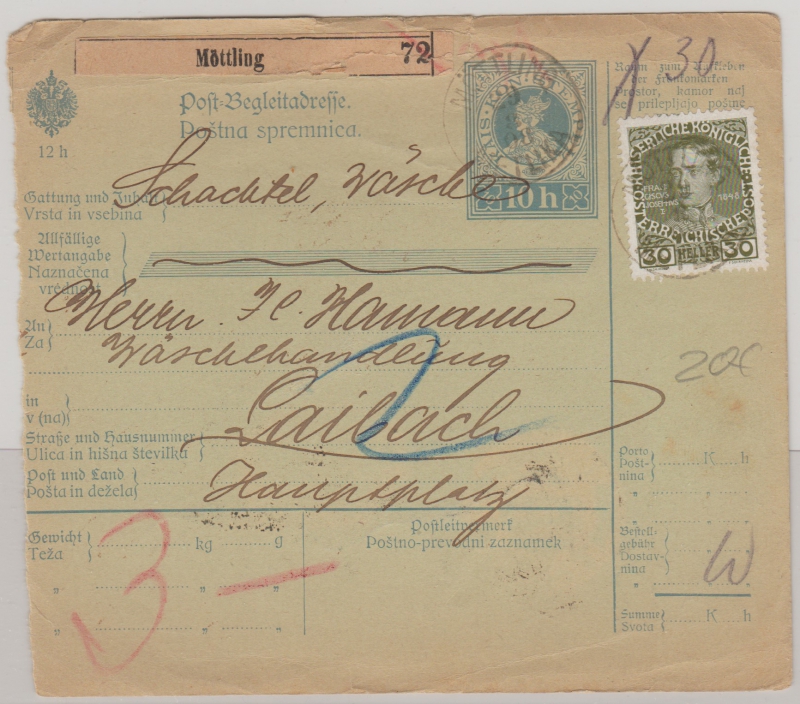 Möttling 72
30
Raum zum Aufkleben
der Frankomarken
Prostor, kamor naj
se prilepljajo poštne
Post-Begleitadresse.
Poštna spremnica.
12 h
KAIS. KÖN.
10 h
MÖTTLING
Schachtel, Wäsche
Gattung und Inhalt
Vrsta in vsebina
Allfällige
Wertangabe
Naznačena
vrednost
KAISERLICHE KÖNIGLICHE
ÖSTERREICHISCHE POST
FRANZISCUS JOSEPHUS I
1848
30 HELLER 30
An
Za
Herrn H. Hamann
Wäschehandlung
in
v (na)
Laibach
2
20€
Straße und Hausnummer
Ulica in hišna številka
Post und Land
Pošta in dežela
Hauptplatz
Porto
Poštnina
K h
Gewicht
Teža
kg g
3 —
Postleitvermerk
Poštno-prevodni zaznamek
Bestellgebühr
Dostavnina
Summe
Svota
K h